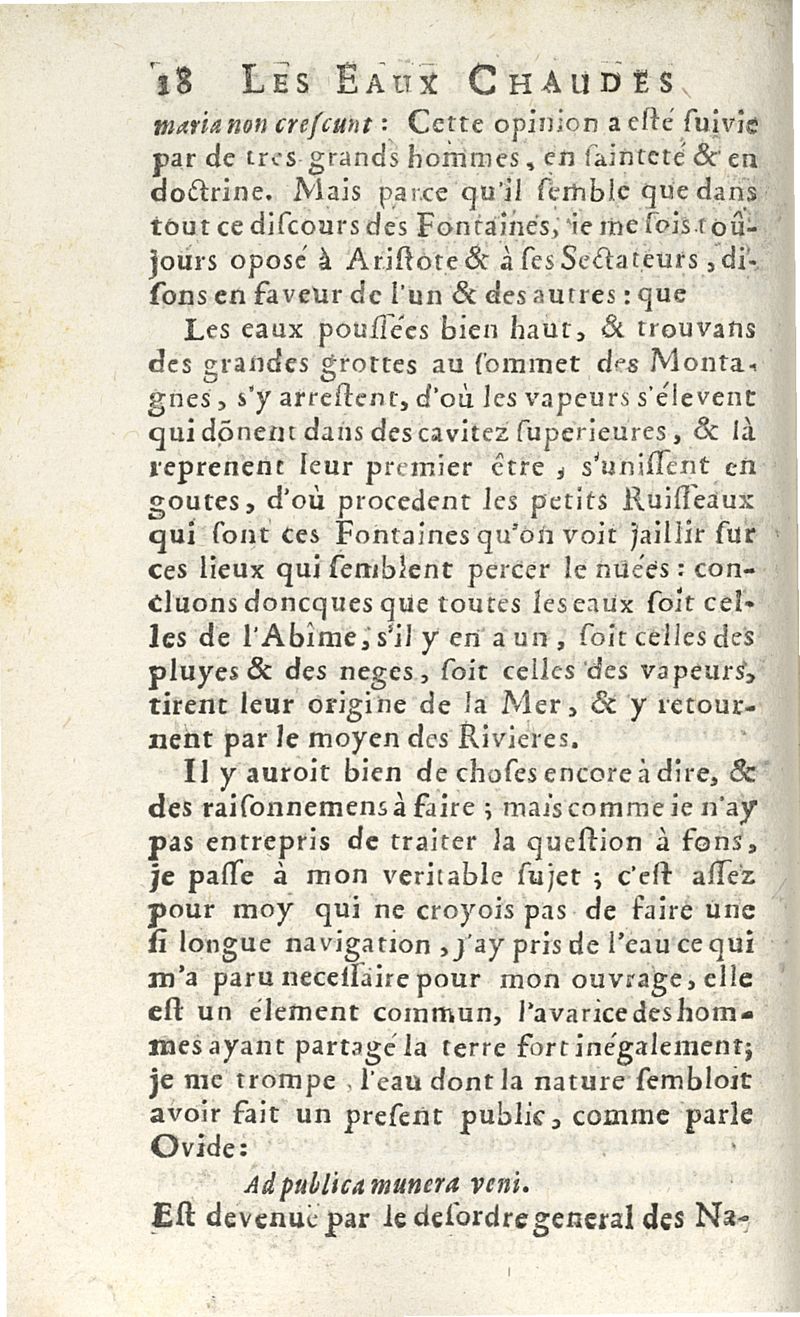 18 LES EAUX CHAUDES
maria non creſcunt : Cette opinion a eſté ſuivie
par de tres grands hommes, en ſainteté & en
doctrine. Mais parce qu'il ſemble que dans
tout ce diſcours des Fontaines, ie me ſois toû-
jours oposé à Ariſtote & à ſes Sectateurs, di-
ſons en faveur de l'un & des autres : que
Les eaux pouſſées bien haut, & trouvans
des grandes grottes au ſommet des Monta-
gnes, s'y arreſtent, d'où les vapeurs s'élevent
qui dõnent dans des cavitez ſuperieures, & là
reprenent leur premier être, s'uniſſent en
goutes, d'où procedent les petits Ruiſſeaux
qui ſont ces Fontaines qu'on voit jaillir ſur
ces lieux qui ſemblent percer le nuées : con-
cluons doncques que toutes les eaux ſoit cel-
les de l'Abîme, s'il y en a un, ſoit celles des
pluyes & des neges, ſoit celles des vapeurs,
tirent leur origine de la Mer, & y retour-
nent par le moyen des Rivieres.
Il y auroit bien de choſes encore à dire, &
des raiſonnemens à faire ; mais comme ie n'ay
pas entrepris de traiter la queſtion à fons,
je paſſe à mon veritable ſujet ; c'eſt aſſez
pour moy qui ne croyois pas de faire une
ſi longue navigation, j'ay pris de l'eau ce qui
m'a paru neceſſaire pour mon ouvrage, elle
eſt un élement commun, l'avarice des hom-
mes ayant partagé la terre fort inégalement;
je me trompe, l'eau dont la nature ſembloit
avoir fait un preſent public, comme parle
Ovide :
Ad publica munera veni.
Eſt devenuë par le deſordre general des Na-